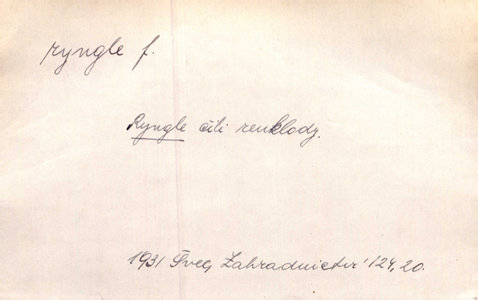 ryngle f.
Ryngle čili renklody.
1931 Švec, Zahradnictv 124, 20.